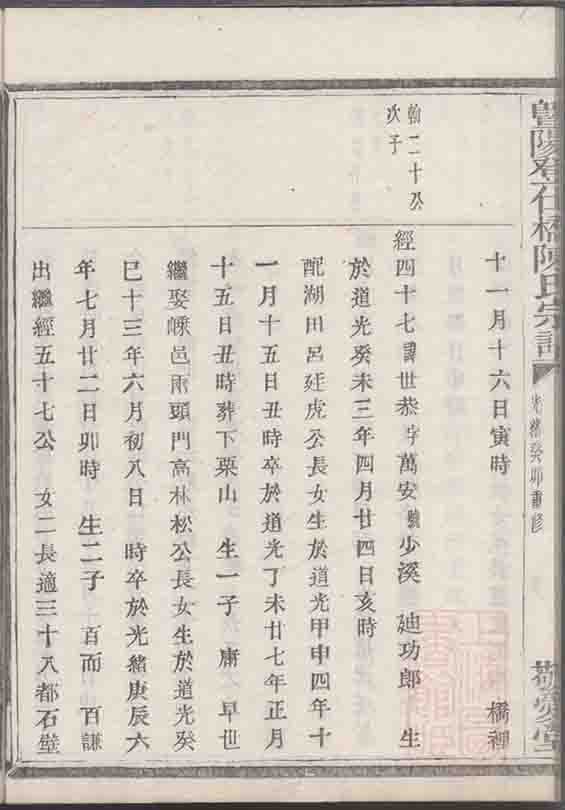 暨陽登仕橋陳氏宗譜
光緒癸卯重修
敬愛堂
十一月十六日寅時　橋裡
翰二十公
次子
經四十七諱世恭字萬安號少溪　廸功郎　生
於道光癸未三年四月廿四日亥時
配湖田呂廷虎公長女生於道光甲申四年十
一月十五日丑時卒於道光丁未廿七年正月
十五日丑時葬下栗山　生一子　庸　早世
繼娶嵊邑雨頭門高林松公長女生於道光癸
巳十三年六月初八日　時卒於光緒庚辰六
年七月廿二日卯時　生二子　百而　百謙
出繼經五十七公　女二長適三十八都石壁